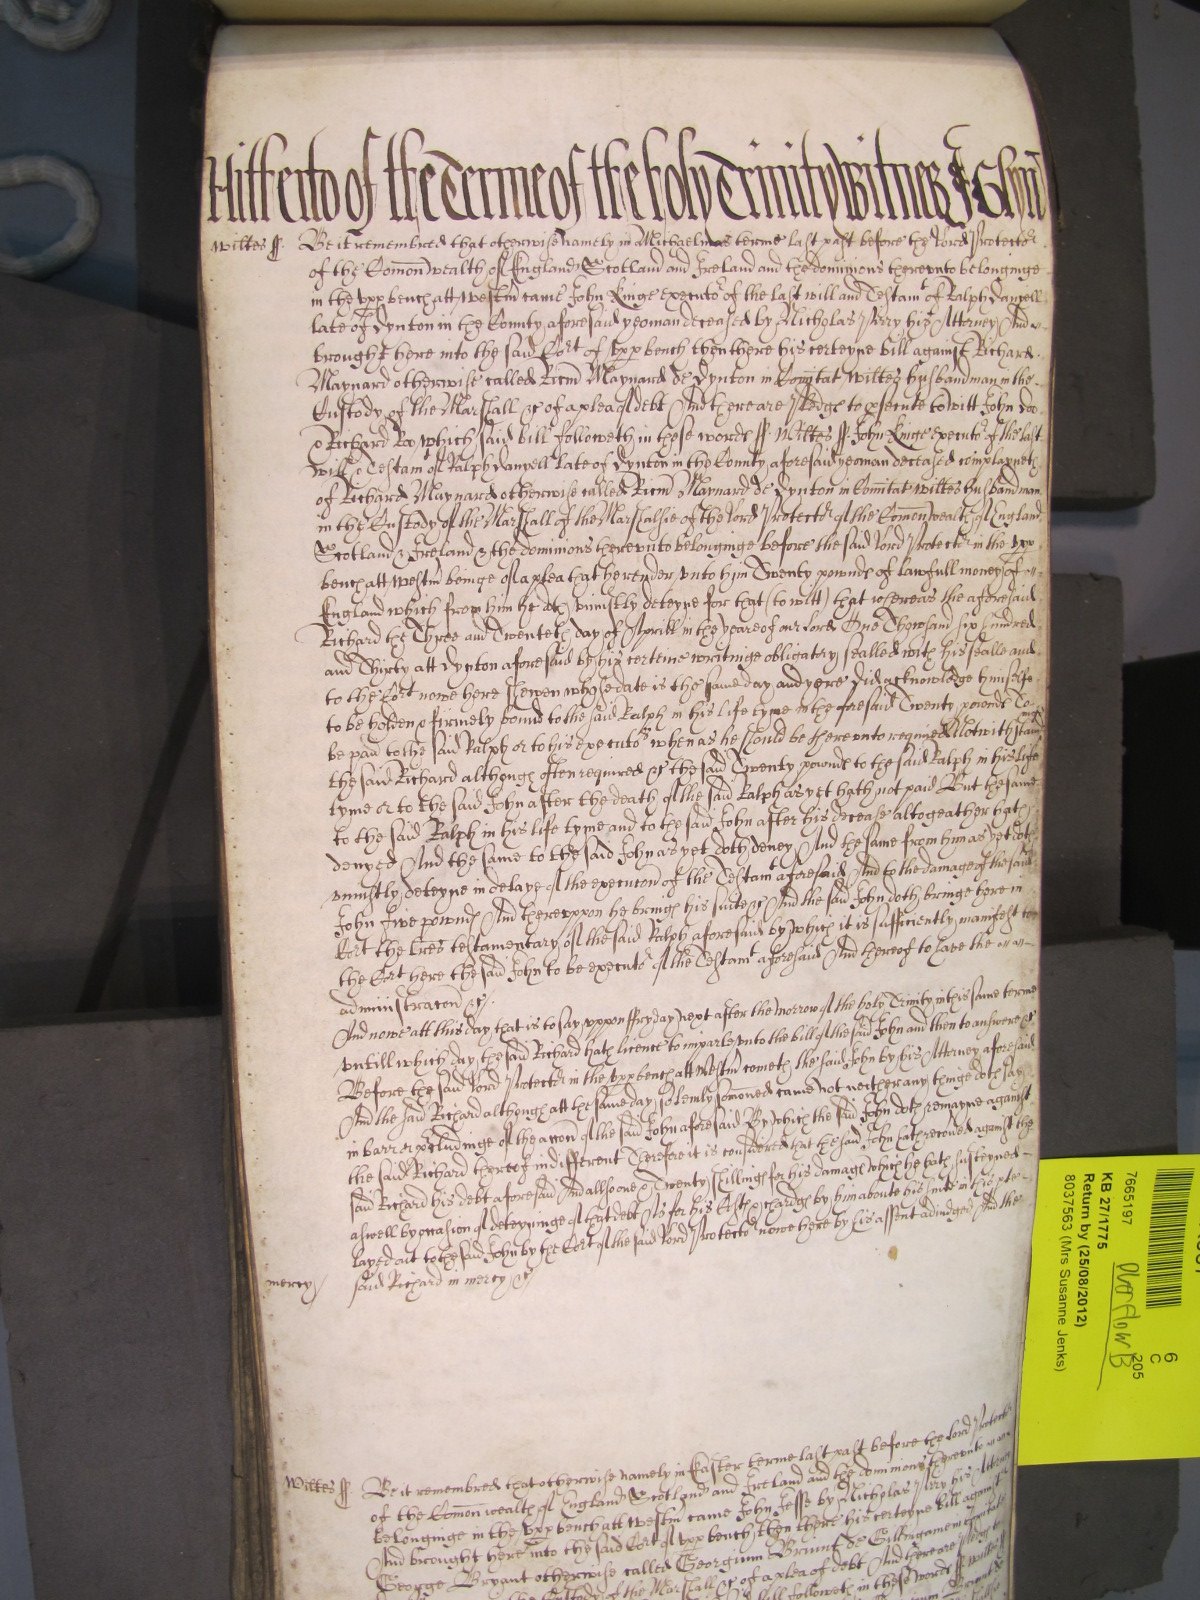 Hitherto of the Terme of the holy Trinity Witnes J Glyn
Wiltes ss. Be it remembred that otherwise namely in Michaelmas terme last past before the Lord Protector
of the Comon wealth of England Scotland and Ireland and the dominions therevnto belonginge
in the vpp bench att Westm came John Kinge executor of the last will and Testamt of Ralph Danyell
late of Dynton in the County aforesaid yeoman deceased by Nicholas Very his Attorney And
brought here into the said Cort of vpp bench then there his certeyne bill against Richard
Maynard otherwise called Ricm Maynard de Dynton in Comitat Wiltes husbandman in the
Custody of the Marshall &c of a plea of debt And there are Pledges to prosecute to witt John Doo
& Richard Roo which said bill followeth in these words ss Wiltes ss. John Kinge executor of the last
will & Testamt of Ralph Danyell late of Dynton in the County aforesaid yeoman deceased complayneth
of Richard Maynard otherwise called Ricm Maynard de Dynton in Comitat Wiltes husbandman
in the Custody of the Marshall of the Marshalsie of the Lord Protector of the Comon wealth of England
Scotland & Ireland & the dominions therevnto belonginge before the said Lord Protector in the vpp
bench att Westm beinge of a plea that he render vnto him Twenty pownds of lawfull money of
England which from him he doth vniustly deteyne for that (to witt) that whereas the aforesaid
Richard the Three and Twenteth day of Aprill in the yeare of our Lord One Thowsand six hundred
and Thirty att Dynton aforesaid by his certeine writinge obligatory sealled with his sealle and
to the Cort nowe here shewen whose date is the same day and yere did acknowledge himselfe
to be holden & firmely bound to the said Ralph in his life tyme in the foresaid Twenty pownds To
be paid to the said Ralph or to his executors when as he should be therevnto required Notwithstandinge
the said Richard although often required &c the said Twenty pownds to the said Ralph in his life
tyme or to the said John after the death of the said Ralph as yet hath not paid But the same
to the said Ralph in his life tyme and to the said John after his decease altogeather hath
denyed And the same to the said John as yet doth deney And the same from him as yet doth
vniustly deteyne in delaye of the execucon of the Testamt aforesaid And to the damage of the said
John Five pownds And therevppon he bringeth his suite &c And the said John doth bringe here in
Cort the Lres testamentary of the said Ralph aforesaid by which it is sufficiently manifest to
the Cort here the said John to be executor of the Testamt aforesaid And thereof to have the
administracon &c.
And nowe att this day that is to say vppon Fryday next after the morrow of the holy Trinity in this same terme
vntill which day the said Richard hath licence to imparle vnto the bill of the said John and then to answere &c
Before the said Lord Protector in the vpp bench att Westm cometh the said John by his Attorney aforesaid
And the said Richard although att the same day solemly somoned came not neither any thinge doth say
in barr or precludinge of the accon of the said John aforesaid By which the said John doth remayne against
the said Richard thereof indifferent Therefore it is considered that the said John hath recoued against the
said Richard his debt aforesaid And allsoe one & Twenty shillings for his damages which he hath susteyned
aswell by occasion of deteyninge of that debt As for his Costs & chardges by him about his suite in this pte
layed out to the said John by the Cort of the said Lord Protector nowe here by his assent adiudged And the
mercy said Richard in mercy &c
Wiltes ss Be it remembred that otherwise namely in Easter terme last past before the Lord Protector
of the Comon wealth of England Scotland and Ireland and the dominions therevnto
belonginge in the vpp bench att Westm came John Jesse by Nicholas Very his Attorney
And brought here into the said Cort of vpp bench then there his certeyne bill against
George Bryant otherwise called Georgium Briant de Gillingame in Comitat
the Custody of the Marshall &c of a plea of debt And there are Pledges to
bill followeth in these words ss Wiltes ss
7665197
KB 27/1775
Return by (25/08/2012)
8037563 (Mrs Susanne Jenks)
6
C
205